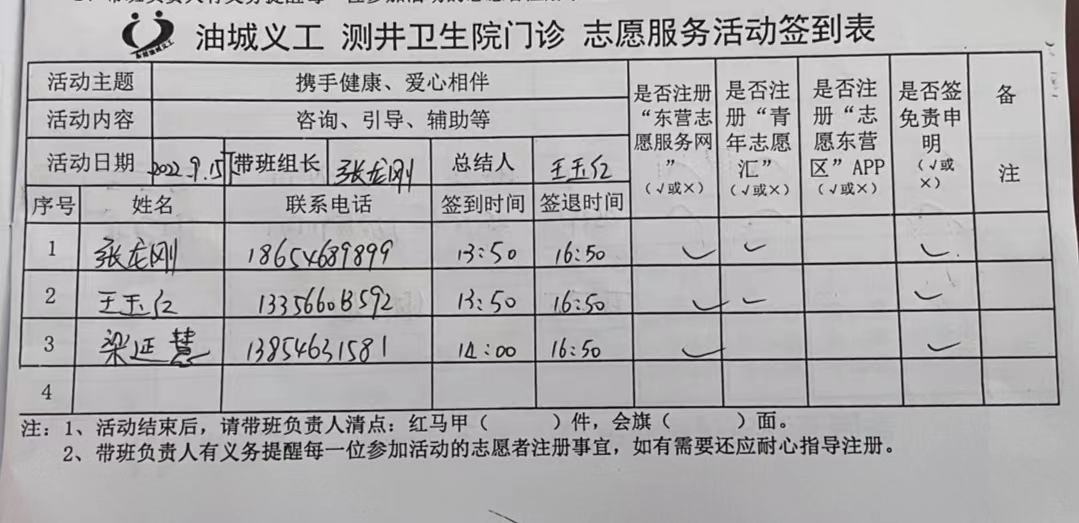 油城义工 测井卫生院门诊 志愿服务活动签到表
东营油城义工
活动主题 携手健康、爱心相伴
活动内容 咨询、引导、辅助等
活动日期 2022.9.15 带班组长 张龙刚 总结人 王玉红
是否注册“东营志愿服务网”(√或×)
是否注册“青年志愿汇”(√或×)
是否注册“志愿东营区”APP(√或×)
是否签免责申明(√或×)
备注
序号 姓名 联系电话 签到时间 签退时间
1 张龙刚 18654689899 13:50 16:50 ✓ ✓ ✓
2 王玉红 13:50 16:50 ✓ ✓ ✓
3 梁延慧 13854631581 14:00 16:50 ✓ ✓
4
注:1、活动结束后,请带班负责人清点:红马甲( )件,会旗( )面。
2、带班负责人有义务提醒每一位参加活动的志愿者注册事宜,如有需要还应耐心指导注册。